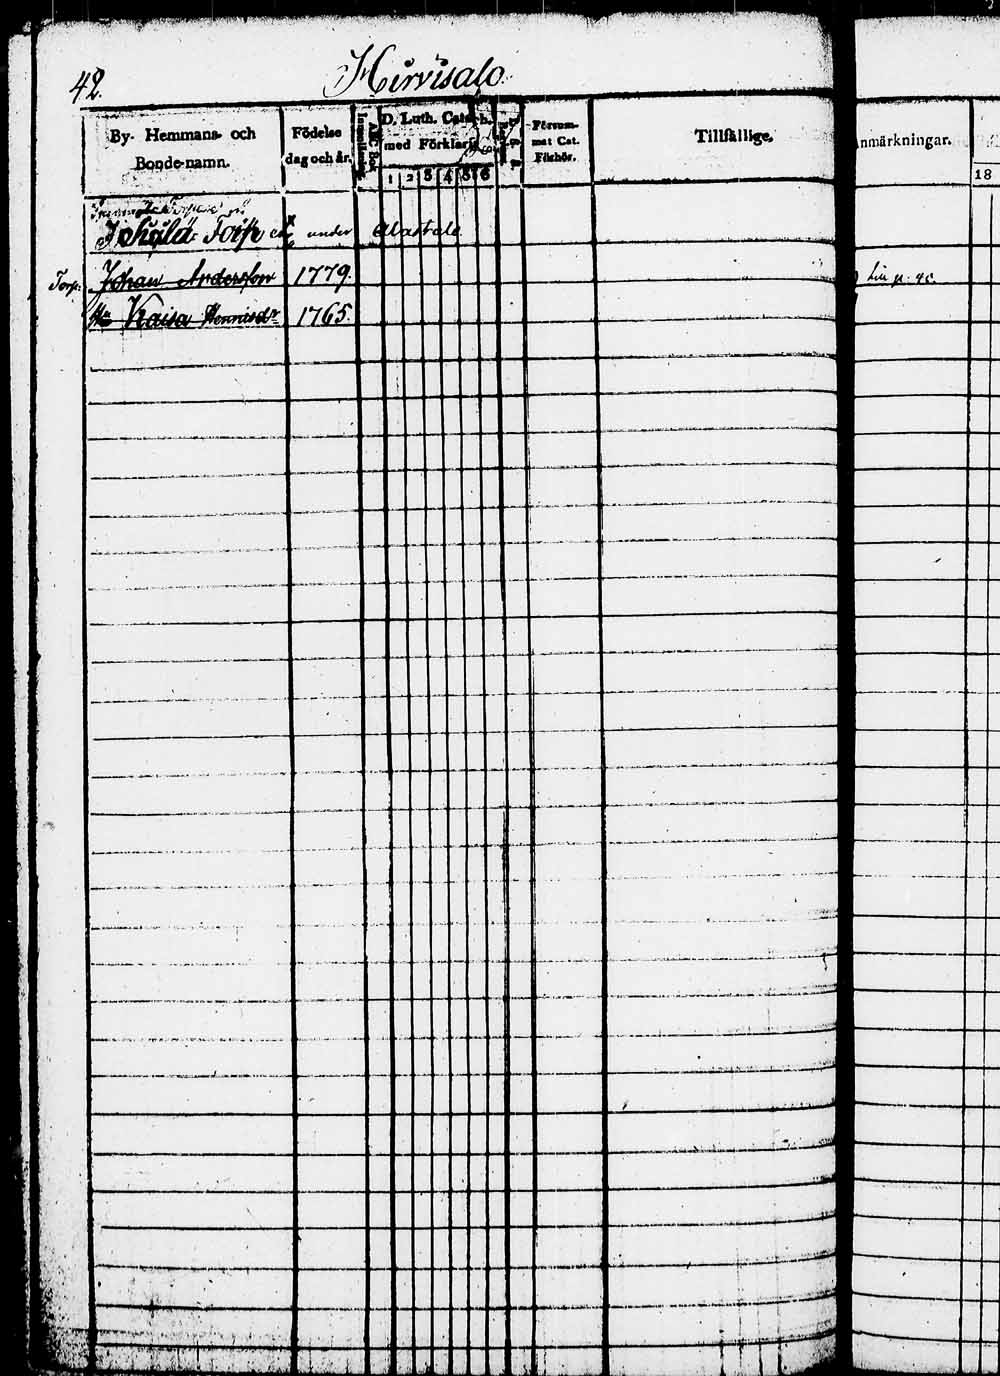 42.
Hirvisalo.
By- Hemmans- och Bonde-namn.
Födelse dag och år.
ABC Bok
D. Luth. Catech. med Förklar.
1 2 3 4 5 6
Försum- mat Cat. Förhör.
Tillfällige.
nmärkningar.
18
Torp under Alastalo
Torp: Johan Andersson 1779.
Hu Kaisa Henricsdr 1765.